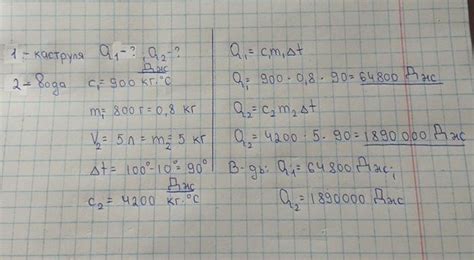 1 - каструля Q₁-? Q₂-?
2 - вода c₁=900 Дж/кг·°C
m₁=800 г=0,8 кг
V₂=5 л=m₂=5 кг
Δt=100°-10°=90°
c₂=4200 Дж/кг·°C
Q₁=c₁m₁Δt
Q₁=900·0,8·90=64800 Дж
Q₂=c₂m₂Δt
Q₂=4200·5·90=1890000 Дж
В-дь: Q₁=64800 Дж;
Q₂=1890000 Дж